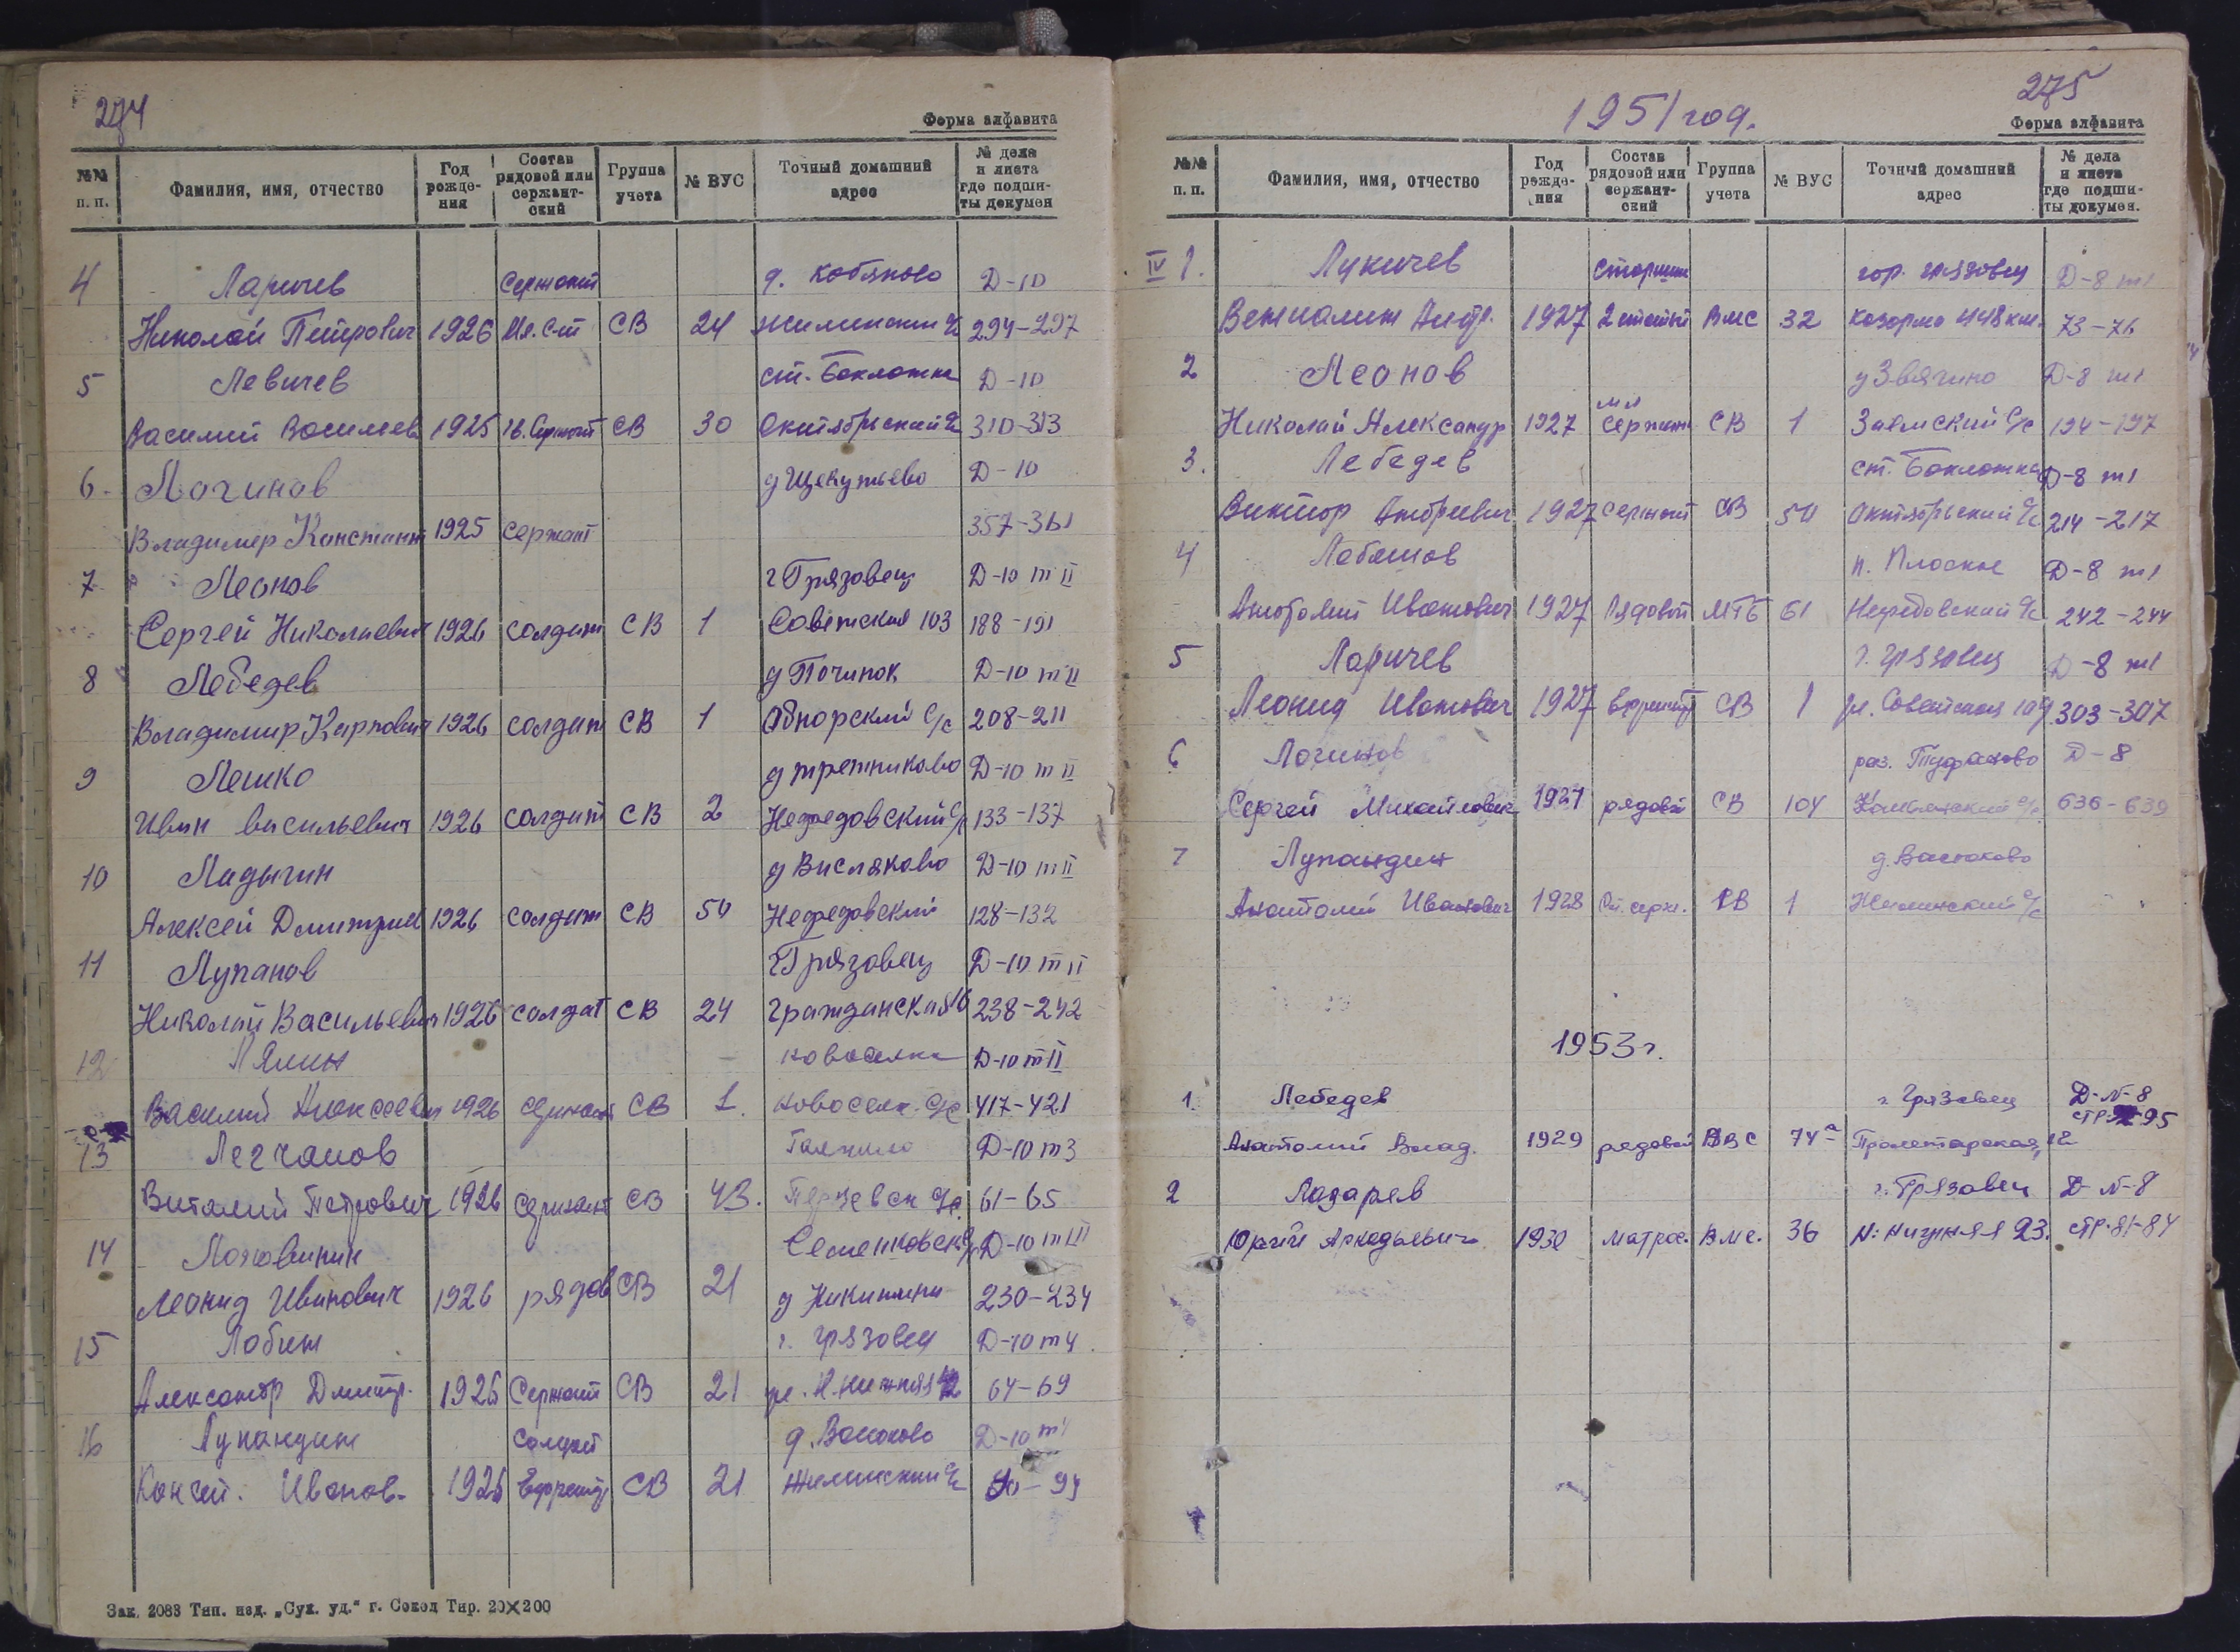 274
Форма алфавита
№№ п. п. Фамилия, имя, отчество Год рожде- ния Состав рядовой или сержант- ский Группа учета № ВУС Точный домашний адрес № дела и листа где подши- ты докумен
4 Ларичев Сержант д. Кобяково Д-10
Николай Петрович 1926 Мл. С-т СВ 24 Жилинский с/с 294-297
5 Левичев ст. Бакланка Д-10
Василий Васильев 1925 Сержант СВ 30 Октябрьский с/с 310-313
6. Логинов д Щекутьево Д-10
Владимер Констант 1925 Сержант 357-361
7 Леонов г Грязовец Д-10 т II
Сергей Николаевич 1926 солдат СВ 1 Советская 103 188-191
8 Лебедев д Починок Д-10 т II
Владимир Карпович 1926 солдат СВ 1 Обнорский с/с 208-211
9 Лешко д Третниково Д-10 т II
Иван васильевич 1926 солдат СВ 2 Нефедовский с/с 133-137
10 Ладыгин д Висляково Д-10 т II
Алексей Дмитрие 1926 солдат СВ 50 Нефедовский 128-132
11 Лупанов г Грязовец Д-10 т II
Николай Васильевич 1926 солдат СВ 24 гражданская 16 238-242
12 Лялин новоселка Д-10 т II
Василий Алексеевич 1926 сержант СВ 1. новоселк. с/с 417-421
13 Легчанов Д-10 т 3
Виталий Петрович 1926 сержант СВ 43. Перцевск с/с. 61-65
14 Семенковск. Д-10 т III
Леонид Иванович 1926 рядов СВ 21 д 230-234
15 Лобин г. Грязовец Д-10 т 4
Александр Дмитр. 1926 Сержант СВ 21 ул. Н. Нижняя 64-69
16 Лупандин Солдат д. Васюково Д-10 т1
Конст. Иванов. 1926 Ефрейт СВ 21 Жилинский с/с
Зак. 2083 Тип. изд. „Сух. уд.“ г. Сокол Тир. 20×200
275
1951 год.
Форма алфавита
№№ п. п. Фамилия, имя, отчество Год рожде- ния Состав рядовой или сержант- ский Группа учета № ВУС Точный домашний адрес № дела и листа где подши- ты докумен.
IV 1. Лукичев старшин гор. Грязовец Д-8 т1
Вениамин 1927 2 статьи ВМС 32 казарма 448 км. 73-76
2 Леонов д Звягино Д-8 т1
Николай Александр 1927 мл Сержант СВ 1 Заемский с/с 194-197
3. Лебедев ст. Бакланка Д-8 т1
Виктор Андреевич 1927 Сержант СВ 50 Октябрьский с/с 214-217
4 Лобашов п. Плоское Д-8 т1
Анатолий Иванович 1927 Рядовой МГБ 61 Нефедовский с/с 242-244
5 Ларичев г. Грязовец Д-8 т1
Леонид Иванович 1927 Ефрейт СВ 1 ул. Советская 303-307
6 Логинов раз. Туфаново Д-8
Сергей Михайлович 1927 рядовой СВ 104 636-639
7 Лупандин д. Васюково
Анатолий Иванович 1928 Ст. серж. СВ 1 Жилинский с/с
1953 г.
1. Лебедев г. Грязовец Д-N-8 стр. 95
Анатолий Влад. 1929 рядовой ВВС 74а Пролетарская, 12
2 Лазарев г. Грязовец Д-N-8
Юрий Аркадьевич 1930 матрос. ВМС. 36 Н: Нижняя 23. стр. 81-84